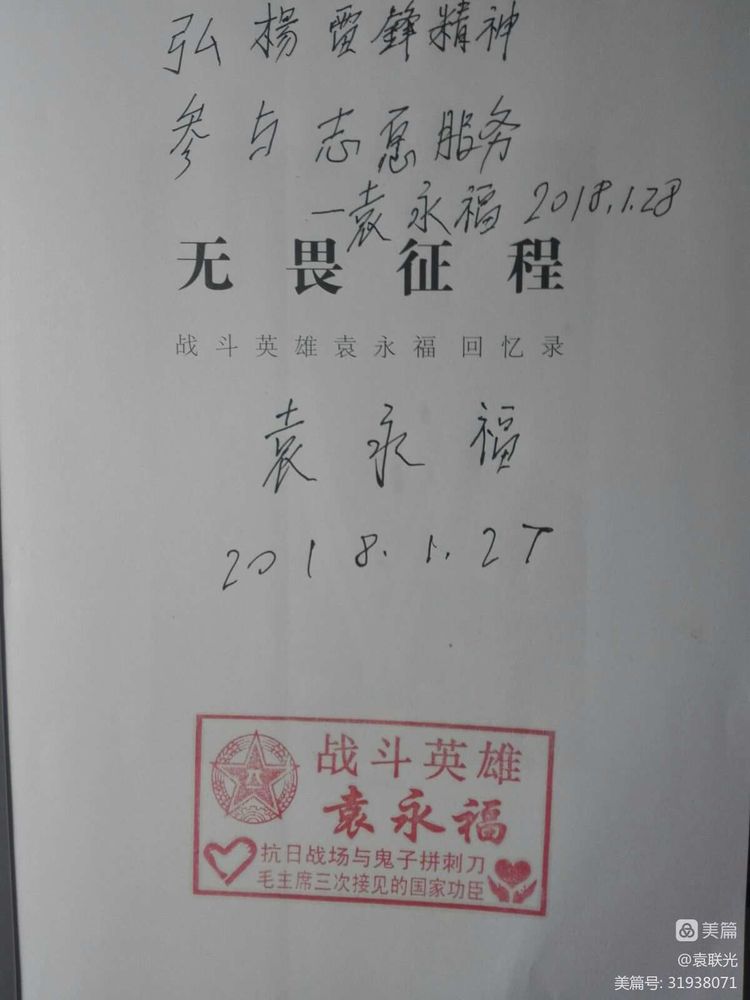 弘楊雷鋒精神
参与志愿服务
—袁永福 2018.1.28
无畏征程
战斗英雄袁永福回忆录
袁永福
2018.1.27
战斗英雄
袁永福
抗日战场与鬼子拼刺刀
毛主席三次接见的国家功臣
美篇
@袁联光
美篇号: 31938071